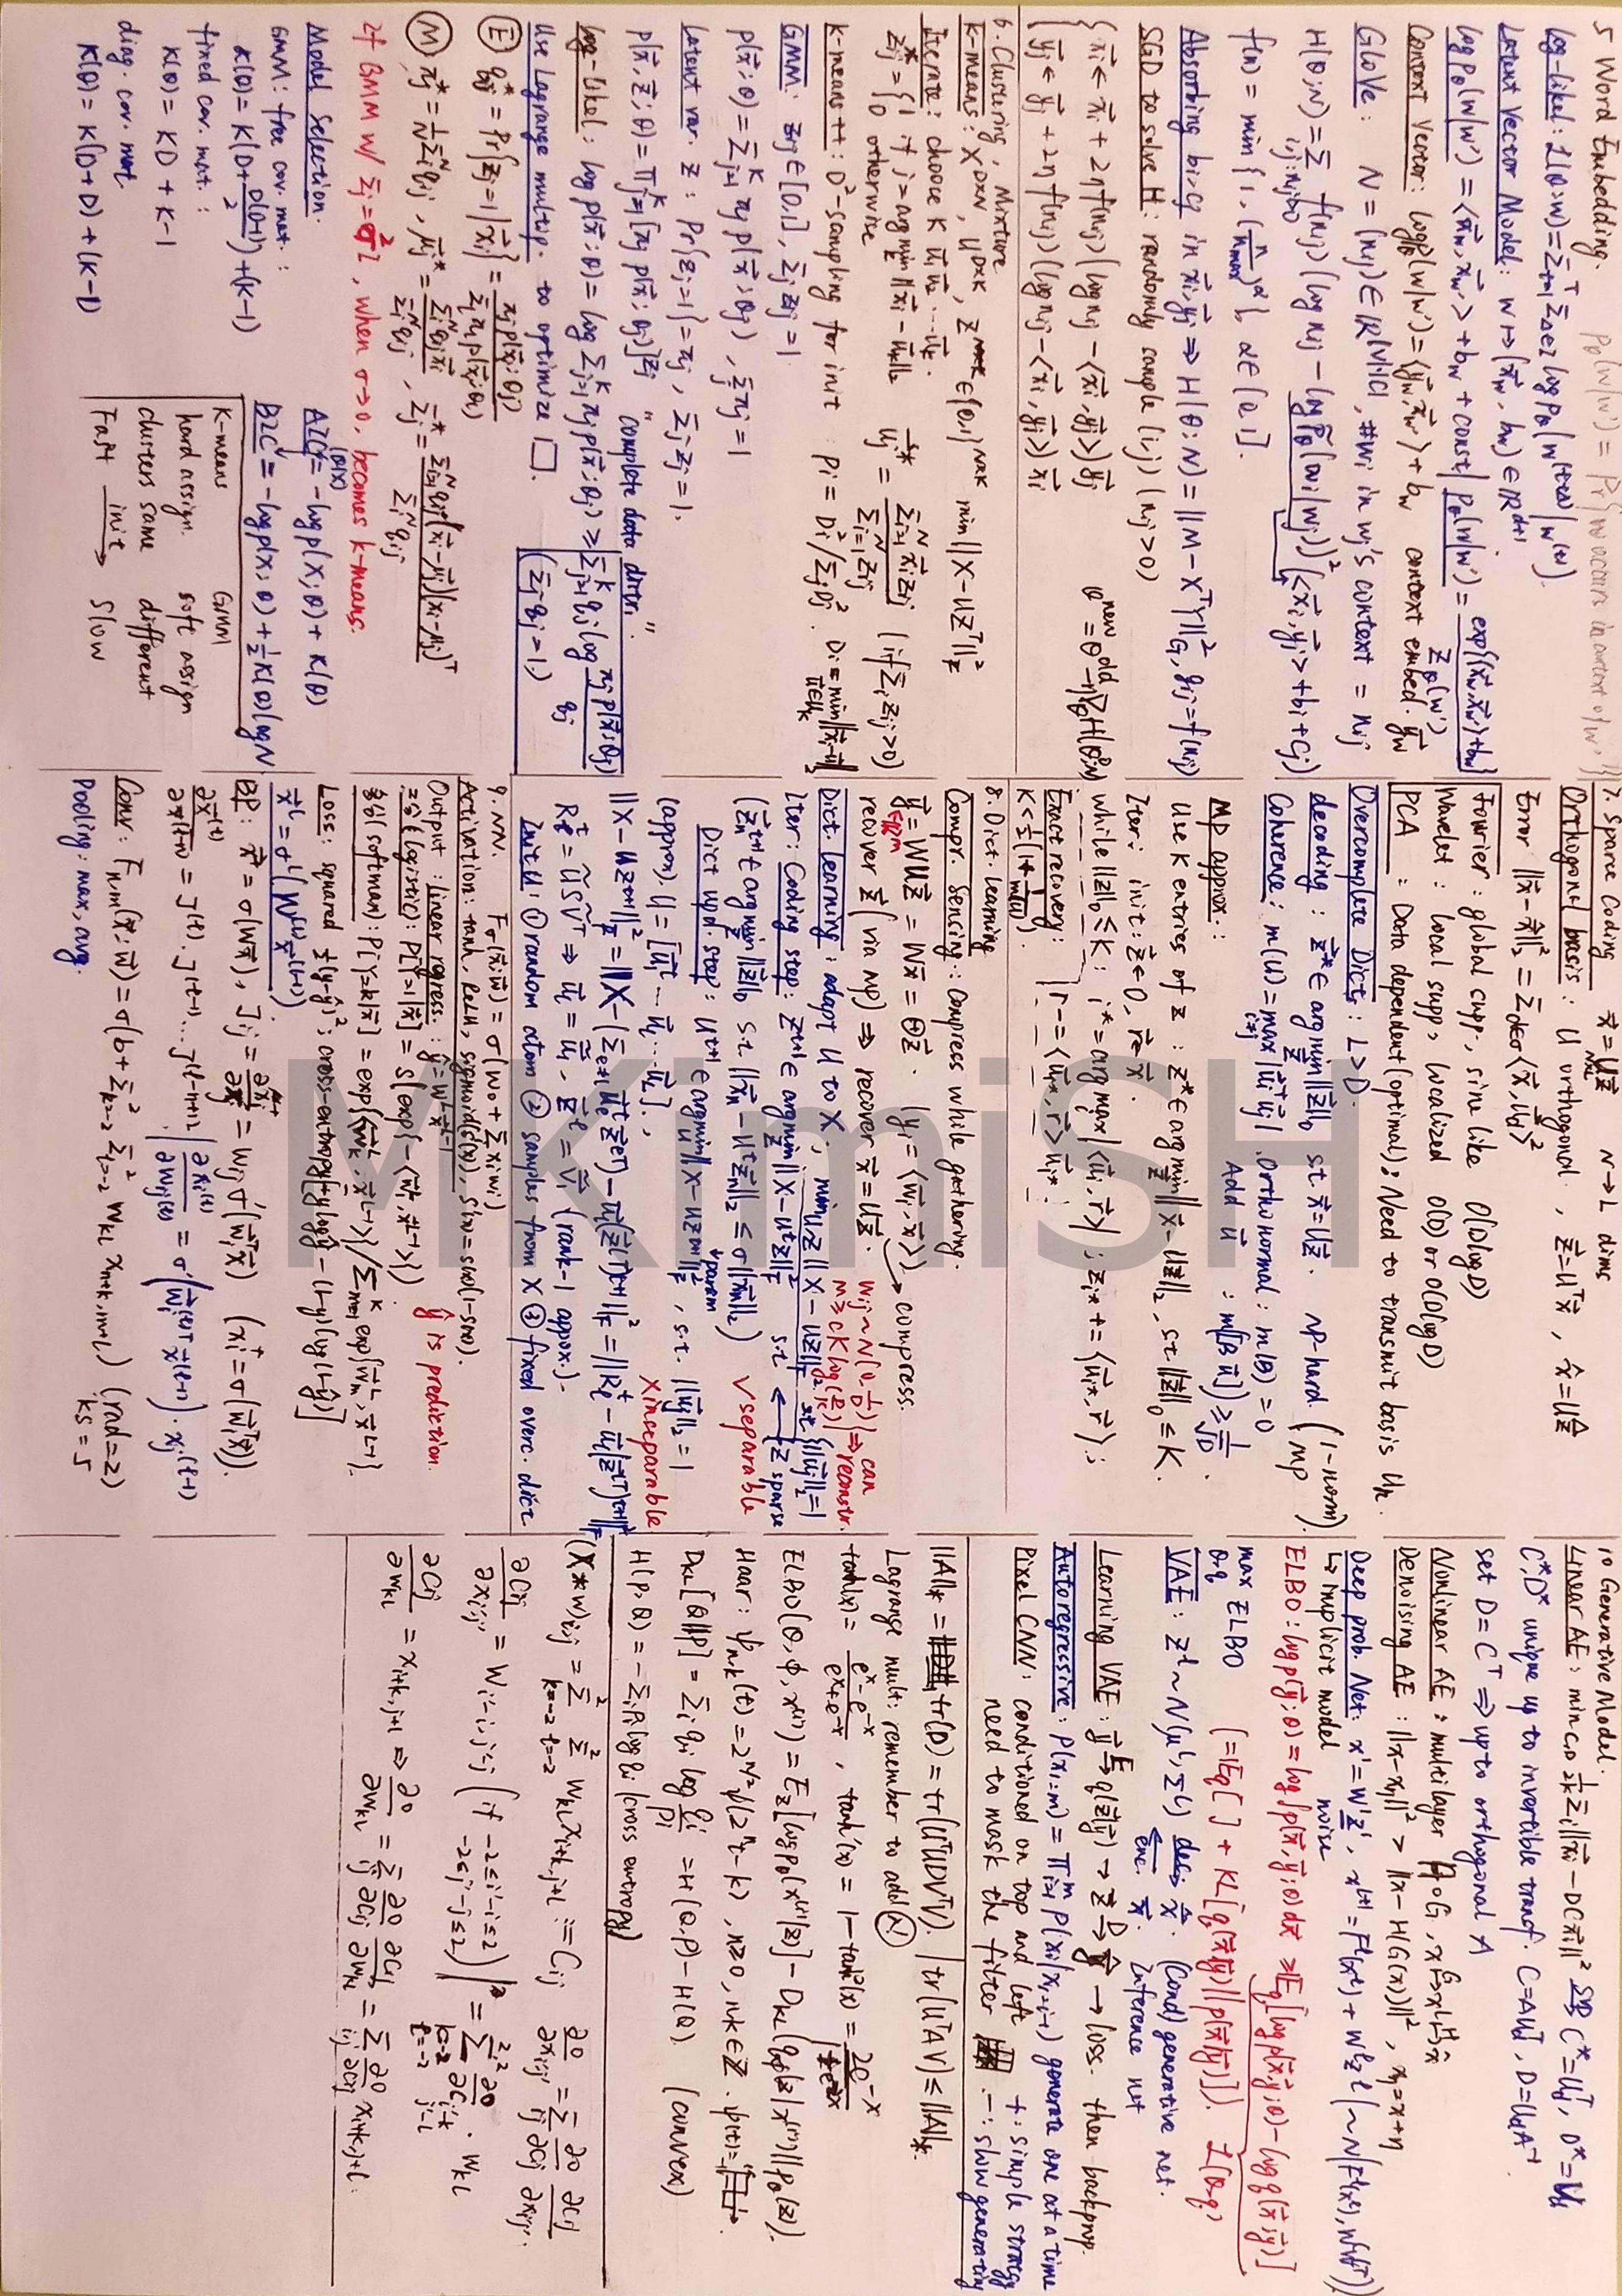 5 Word Embedding. p_θ(w|w') = Pr{w occurs in context of w'}
log-likel: L(θ;w) = Σ_{t=1}^T Σ_{Δ∈I} log p_θ(w^{(t+Δ)}|w^{(t)}).
Latent Vector Model: w ↦ (x⃗_w, b_w) ∈ R^{d+1}
log p_θ(w|w') = <x⃗_w, x⃗_w'> + b_w + const | p_θ(w|w') = exp{<x⃗_w, x⃗_w'> + b_w} / Z_θ(w')
Context Vector: log p_θ(w|w') = <y⃗_w, x⃗_w'> + b_w context embed. y⃗_w
GloVe: N = (n_ij) ∈ R^{|V|·|C|}, #w_i in w_j's context = n_ij
H(θ;N) = Σ_{i,j: n_ij>0} f(n_ij) (log n_ij - log p̃_θ(w_i|w_j))² (<x⃗_i, y⃗_j> + b_i + c_j)
f(n) = min{1, (n/n_max)^α}, α∈(0,1].
Absorbing b_i, c_j in x⃗_i, y⃗_j ⇒ H(θ;N) = ||M - X^T Y||²_G, g_ij = f(n_ij)
SGD to solve H: randomly sample (i,j) (n_ij > 0) θ^new = θ^old - η∇_θ H(θ;N)
{ x⃗_i ← x⃗_i + 2η f(n_ij) (log n_ij - <x⃗_i, y⃗_j>) y⃗_j
y⃗_j ← y⃗_j + 2η f(n_ij) (log n_ij - <x⃗_i, y⃗_j>) x⃗_i
6. Clustering, Mixture
K-means: X D×N, U D×K, Z ∈ {0,1}^{N×K} min ||X - UZ^T||²_F
Iterate: choose K u⃗_1 u⃗_2 ... u⃗_k.
z*_ij = { 1 if j = argmin ||x⃗_i - u⃗_k||_2 u⃗*_j = Σ_{i=1}^N x⃗_i z_ij / Σ_{i=1}^N z_ij (if Σ_i z_ij > 0)
0 otherwise
K-means++: D²-sampling for init: p_i = D_i² / Σ_j D_j². D_i = min_{u⃗∈U_k} ||x⃗_i - u⃗||_2
GMM: z_j ∈ [0,1], Σ_j z_j = 1.
p(x⃗;θ) = Σ_{j=1}^K π_j p(x⃗;θ_j), Σ_j π_j = 1
Latent var. z: Pr{z_j=1} = π_j, Σ_j z_j = 1.
p(x⃗,z⃗;θ) = Π_{j=1}^K [π_j p(x⃗;θ_j)]^{z_j} "complete data distri."
log-likel: log p(x⃗;θ) = log Σ_{j=1}^K π_j p(x⃗;θ_j) ≥ Σ_{j=1}^K q_j log π_j p(x⃗;θ_j) / q_j
Use Lagrange multip. to optimize □. (Σ_j q_j = 1.)
(E) q*_ij = Pr{z_j=1|x⃗_i} = π_j p(x⃗_i;θ_j) / Σ_l π_l p(x⃗_i;θ_l)
(M) π*_j = 1/N Σ_i^N q_ij, μ⃗*_j = Σ_i^N q_ij x⃗_i / Σ_i^N q_ij, Σ*_j = Σ_{i=1}^N q_ij (x⃗_i - μ⃗_j)(x⃗_i - μ⃗_j)^T / Σ_i^N q_ij
If GMM w/ Σ_j = σ²I, when σ→0, becomes k-means.
Model Selection.
GMM: free cov. mat.:
K(θ) = K(D + D(D+1)/2) + (K-1)
fixed cov. mat.:
K(θ) = KD + K-1
diag. cov. mat.
K(θ) = K(D+D) + (K-1)
AIC(θ|X) = -log p(X;θ) + K(θ)
BIC = -log p(X;θ) + ½ K(θ) log N
K-means GMM
hard assign. soft assign
clusters same different
Fast —init→ Slow
7. Sparse Coding x⃗ = Uz⃗ N→L dims
Orthogonal basis: U orthogonal, z⃗ = U^T x⃗, x̂ = Uẑ
Error ||x⃗ - x̂||²_2 = Σ_{d∉σ} <x⃗, u⃗_d>²
Fourier: global supp., sine like O(D log D)
Wavelet: local supp, localized O(D) or O(D log D)
PCA: Data dependent (optimal); Need to transmit basis U_k.
Overcomplete Dict: L > D.
decoding: z⃗* ∈ argmin ||z⃗||_0 st x⃗ = Uz⃗. NP-hard (1-norm) (MP
Coherence: m(U) = max_{i≠j} |u⃗_i^T u⃗_j|. Orthonormal: m(B) = 0
Add u⃗: m([B u⃗]) ≥ 1/√D.
MP approx.:
Use K entries of z: z* ∈ argmin ||x⃗ - Uz⃗||_2, s.t. ||z⃗||_0 ≤ K.
Iter: init: z⃗ ← 0, r⃗ ← x⃗.
while ||z||_0 ≤ K: i* = argmax |<u⃗_i, r⃗>|; z_i* += <u⃗_i*, r⃗>;
r -= <u⃗_i*, r> u⃗_i*;
Exact recovery:
K < ½(1 + 1/m(U)).
Compr. Sensing: Compress while gathering.
y⃗ = WUz⃗ = Wx⃗ = Θz⃗. (y_i = <w⃗_i, x⃗>) → compress.
recover z⃗ (via MP) ⇒ recover x⃗ = Uz⃗. w_ij ~ N(0, 1/D) ⇒ can
M ≥ cK log(D/K) reconstr.
8. Dict. Learning
Dict Learning: adapt U to X, min_{U,Z} ||X - UZ||²_F st { ||u⃗_j||_2 = 1
Z sparse
Iter: Coding step: Z^{t+1} ∈ argmin ||X - U^t Z||²_F s.t.
(z⃗_n^{t+1} ∈ argmin ||z⃗||_0 s.t. ||x⃗_n - U^t z⃗_n||_2 ≤ σ||x⃗_n||_2) ✓ separable
param
Dict upd. step: U^{t+1} ∈ argmin ||X - UZ^{t+1}||²_F, s.t. ||u⃗_j||_2 = 1
(approx). U = [u⃗_1^t ... u⃗_l ... u⃗_L^t]. X inseparable
||X - UZ^{t+1}||²_F = ||X - (Σ_{e≠l} u⃗_e^t z⃗_e^T) - u⃗_l (z⃗_l^T)^{t+1}||²_F = ||R_l^t - u⃗_l (z⃗_l^T)^{t+1}||²_F
R_l^t = ŨSṼ^T ⇒ u⃗_l = ũ_1, z⃗_l = ṽ_1 (rank-1 appox.).
Init U: ① random atom ② samples from X ③ fixed overc. dict
9. NN. F_σ(x⃗;w⃗) = σ(w_0 + Σ x_i w_i)
Activation: tanh, ReLU, sigmoid(s(x)), s'(x) = s(x)(1-s(x)).
Output: linear regress.: ŷ = W^L x⃗^{L-1} ŷ is prediction.
(logistic): P[Y=1|x⃗] = 1/(1+exp{-<w⃗, x⃗^{L-1}>})
(softmax): P[Y=k|x⃗] = exp{<w⃗_k, x⃗^{L-1}>} / Σ_{m=1}^K exp{<w⃗_m, x⃗^{L-1}>}.
Loss: squared ½(y-ŷ)²; cross-entropy[-y log ŷ - (1-y) log(1-ŷ)]
x⃗^l = σ^l(W^{(l)} x⃗^{(l-1)})
BP: x⃗⁺ = σ(Wx⃗), J_ij = ∂x_i⁺/∂x_j = w_ij σ'(w⃗_i^T x⃗) (x_i⁺ = σ(w⃗_i^T x⃗)).
∂x⃗^{(l)}/∂x⃗^{(l-n)} = J^{(l)}·J^{(l-1)}...J^{(l-n+1)} | ∂x_i^{(l)}/∂w_ij^{(l)} = σ'(w⃗_i^{(l)T} x⃗^{(l-1)})·x_j^{(l-1)}
Conv: F_{n,m}(x⃗;w⃗) = σ(b + Σ_{k=-2}^2 Σ_{l=-2}^2 w_{kl} x_{n+k,m+l}) (rad=2)
ks=5
Pooling: max, avg.
10 Generative Model.
Linear AE: min_{C,D} 1/2k Σ_i ||x⃗_i - DCx⃗_i||² C* = U_k^T, D* = U_k
C*, D* unique up to invertible transf. C = AU_k^T, D = U_k A^{-1}
set D = C^T ⇒ up to orthogonal A
Nonlinear AE: multilayer H∘G, x →G z →H x̂
Denoising AE: ||x - x_η||² > ||x - H(G(x))||², x_η = x + η
Deep prob. Net: x^l = W^l z^l, x^{l+1} = F^l(x^l) + W^l z^l (~N(F^l(x^l), WW^T))
↳ implicit model noise
ELBO: log p(y⃗;θ) = log∫p(x⃗,y⃗;θ)dx ≥ E_q[log p(x⃗,y⃗;θ) - log q(x⃗;y⃗)]
max_{θ,q} ELBO (= E_q[ ] + KL[q(x⃗;y⃗)||p(x⃗|y⃗)]). L(θ,q)
VAE: z^l ~ N(μ^l, Σ^l) dec→ x̂. (Cond) generative net.
←enc. x⃗. Inference net
Learning VAE: y⃗ →E q(z⃗|y⃗) → z⃗ →D ŷ → loss. then backprop.
Autoregressive: P(x_{1:m}) = Π_{i=1}^m P(x_i|x_{1:i-1}) generate one at a time
Pixel CNN: conditioned on top and left +: simple strategy
need to mask the filter -: slow generating
||A||_* = tr(D) = tr(U^T UDV^T V). | tr(U^T AV) ≤ ||A||_*.
Lagrange mult: remember to add λ!
tanh(x) = (e^x - e^{-x})/(e^x + e^{-x}), tanh'(x) = 1 - tanh²(x)
ELBO(θ,φ,x^{(i)}) = E_z[log p_θ(x^{(i)}|z)] - D_KL(q_φ(z|x^{(i)})||p_θ(z)).
Haar: ψ_{n,k}(t) = 2^{n/2} ψ(2^n t - k), n≥0, n,k∈Z.
D_KL[Q||P] = Σ_i q_i log q_i/p_i = H(Q,P) - H(Q) (convex)
H(P,Q) = -Σ_i p_i log q_i (cross entropy)
(X*w)_ij = Σ_{k=-2}^2 Σ_{l=-2}^2 w_kl x_{i+k,j+l} := C_ij
∂O/∂x_i'j' = Σ_ij ∂O/∂C_ij ∂C_ij/∂x_i'j'
∂C_ij/∂x_i'j' = W_{i'-i,j'-j} (if -2≤i'-i≤2, -2≤j'-j≤2) = Σ_{k=-2}^2 Σ_{l=-2}^2 ∂O/∂C_{i'-k,j'-l} · W_kl
∂C_ij/∂w_kl = x_{i+k,j+l} ⇒ ∂O/∂w_kl = Σ_ij ∂O/∂C_ij ∂C_ij/∂w_kl = Σ_ij ∂O/∂C_ij x_{i+k,j+l}.
MKimiSH